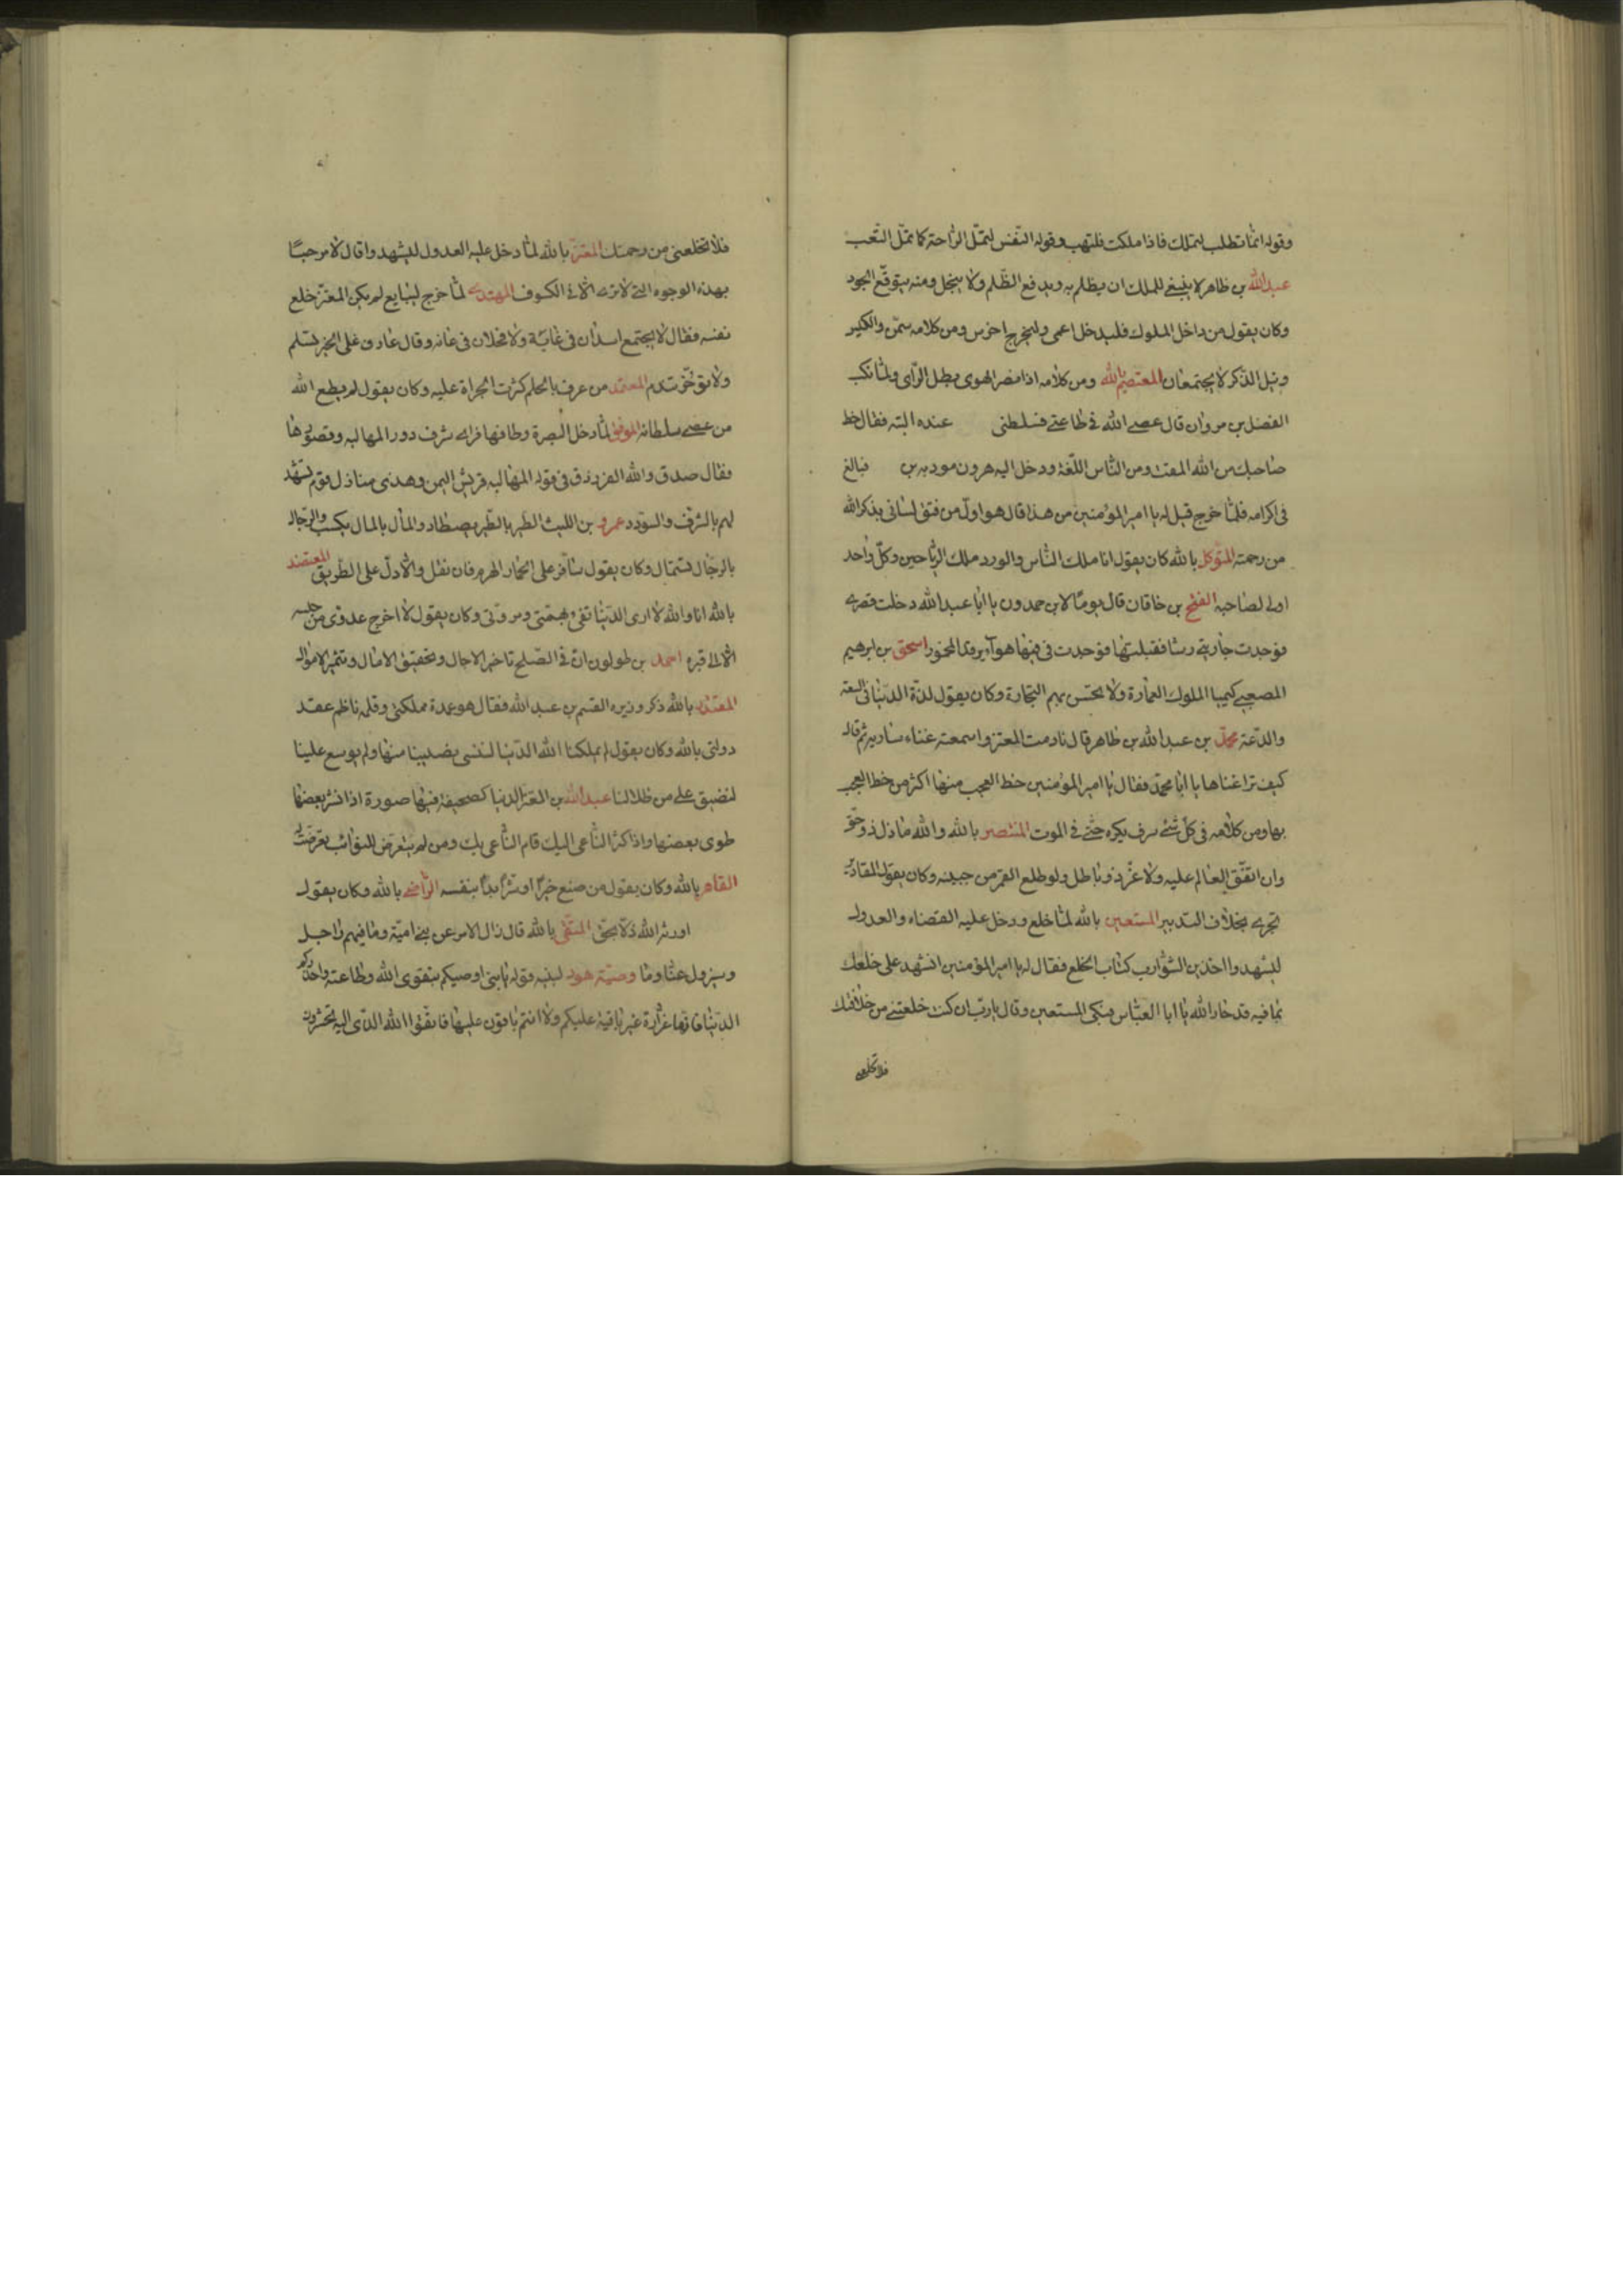 وقوله انما تطلب لتملك فاذا ملكت فلتهب وقوله النفس لتمل الراحة كما تمل التعب
عبد الله بن طاهر لا ينبغي للملك ان يظلم به ويدفع الظلم ولا يبخل ومنه يتوقع الجود
وكان يقول من داخل الملوك فليدخل اعمى وليخرج اخرس ومن كلامه سمن والكبر
ونيل الذكر لا يجتمعان المعتصم بالله ومن كلامه اذا نصر الهوى بطل الراى ولما نكب
الفضل بن مروان قال عصى الله في طاعتى فسلطنى عنده البته فقال خط
صاحبك من الله المقت ومن الناس اللعنة ودخل اليه هرون فبالغ
في اكرامه فلما خرج قيل له يا امير المؤمنين من هذا قال هو اول من فتق لسانى بذكر الله
من رحمته المتوكل بالله كان يقول انا ملك الناس والورد ملك الرياحين وكل واحد
اولى لصاحبه الفتح بن خاقان قال يوما لابن حمدون يا ابا عبد الله دخلت قصرى
فوجدت جارية رشا فقبلتها فوجدت في فيها هواء لو رقد المخمور اسحق بن ابرهيم
المصعبى كيميا الملوك العمارة ولا يحسن بهم التجارة وكان يقول لذة الدنيا في السعة
والدعة محمد بن عبد الله بن طاهر قال نادمت المعتز واسمعته غناء ساريه ثم قال
كيف ترا غناها يا ابا محمد فقال يا امير المؤمنين حظ العجب منها اكثر من حظ العجب
بها ومن كلامه في كل شئ سرف يكره حتى في الموت المنتصر بالله والله ما ذل ذو حق
وان اتفق العالم عليه ولا عز ذو باطل ولو طلع القمر من جبينه وكان يقول المقادير
تجرى بخلاف التدبير المستعين بالله لما خلع ودخل عليه القضاه والعدول
ليشهدوا اخذ بن الشوارب كتاب الخلع فقال له يا امير المؤمنين انشهد على خلعك
بما فيه قد خار الله يا ابا العباس فبكى المستعين وقال يا رب ان كنت خلعتنى من خلافتك
فلا تخلعنى
فلا تخلعنى من رحمتك المعتز بالله لما دخل عليه العدول ليشهدوا قال لا مرحبا
بهذه الوجوه التي لا ترى الا في الكسوف المهتدى لما خرج ليبايع لم يكن المعتز خلع
نفسه فقال لا يجتمع اسدان في غابة ولا فحلان في عانه وقال عادى على الخير تسلم
ولا توخر تندم المعتمد من عرف بالحلم كثرت الجراة عليه وكان يقول لم يطع الله
من عصى سلطانه الموفق لما دخل البصرة وطاف بها فراى شرف دور المهالبه وقصورها
فقال صدق والله الفرزدق في قوله المهالبه قريش اليمن وهدى منازل قوم تشهد
لهم بالشرف والسودد عمرو بن الليث الطير بالطير يصطاد والمال بالمال يكسب والرجال
بالرجال تستمال وكان يقول سافر على الحمار الهرم فان نفل والا دل على الطريق المعتضد
بالله انا والله لا ارى الدنيا تفى بهمتى ومروتى وكان يقول لا اخرج عدوى من حبسه
الا الى قبره احمد بن طولون ان في الصلح تاخير الاجال وتحقيق الامال وتثمير الاموال
المقتدر بالله ذكر وزيره القسم بن عبد الله فقال هو عمدة مملكتى وقلمه ناظم عقد
دولتى بالله وكان يقول لم يملكنا الله الدنيا لننسى نصيبنا منها ولم يوسع علينا
لنضيق على من ظلالنا عبد الله بن المعتز الدنيا كصحيفة فيها صورة اذا نشر بعضها
طوى بعضها واذا كثر الناعى اليك قام الناعى بك ومن لم يتعرض للنوائب تعرضت له
القاهر بالله وكان يقول من صنع خيرا او شرا بدا بنفسه الراضى بالله وكان يقول
اورث الله ذلا بحق المتقى بالله قال زال الامر عن بنى امية وما فيهم راجل
وسيزول عنا وما وصية هود لبنيه قوله يا بنى اوصيكم بتقوى الله وطاعته واحذركم
الدنيا فانها غرارة غير باقية عليكم ولا انتم باقون عليها فاتقوا الله الذى اليه تحشرون